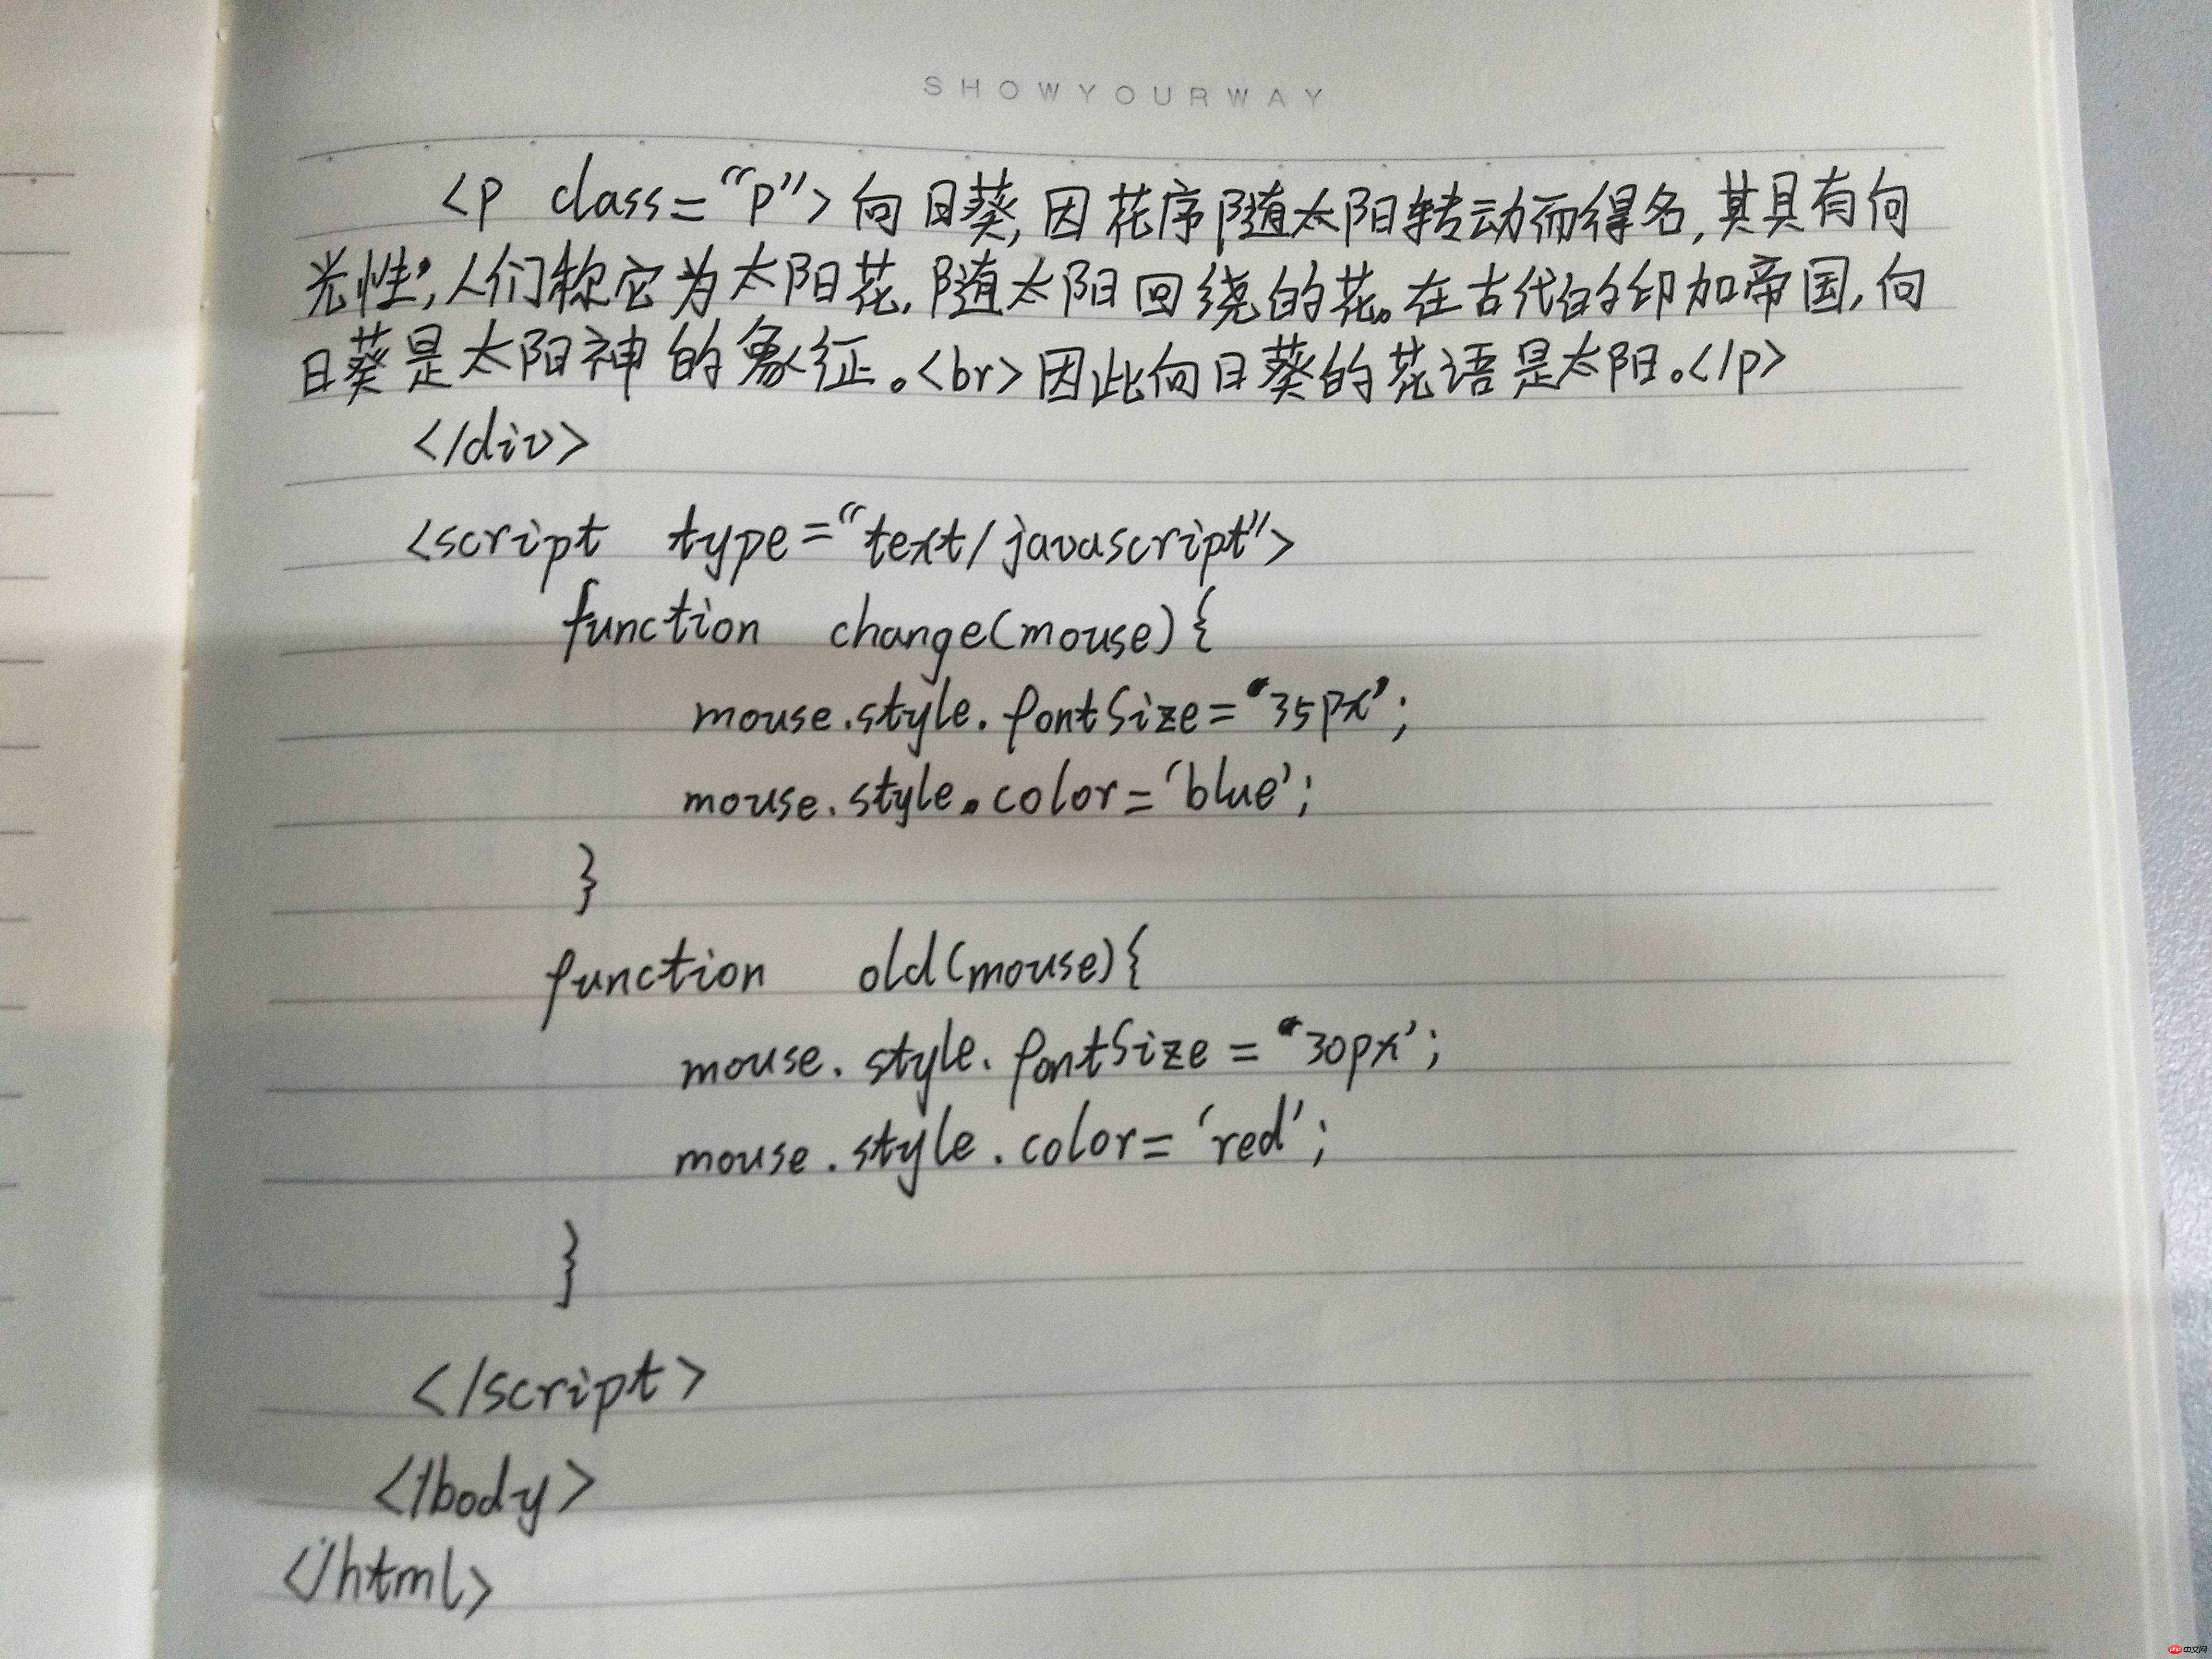 SHOWYOURWAY
<p class="p">向日葵,因花序随太阳转动而得名,其具有向
光性,人们称它为太阳花,随太阳回绕的花。在古代的印加帝国,向
日葵是太阳神的象征。<br>因此向日葵的花语是太阳。</p>
</div>
<script type="text/javascript">
function change(mouse){
mouse.style.fontSize='35px';
mouse.style.color='blue';
}
function old(mouse){
mouse.style.fontSize='30px';
mouse.style.color='red';
}
</script>
</body>
</html>
php 中文网